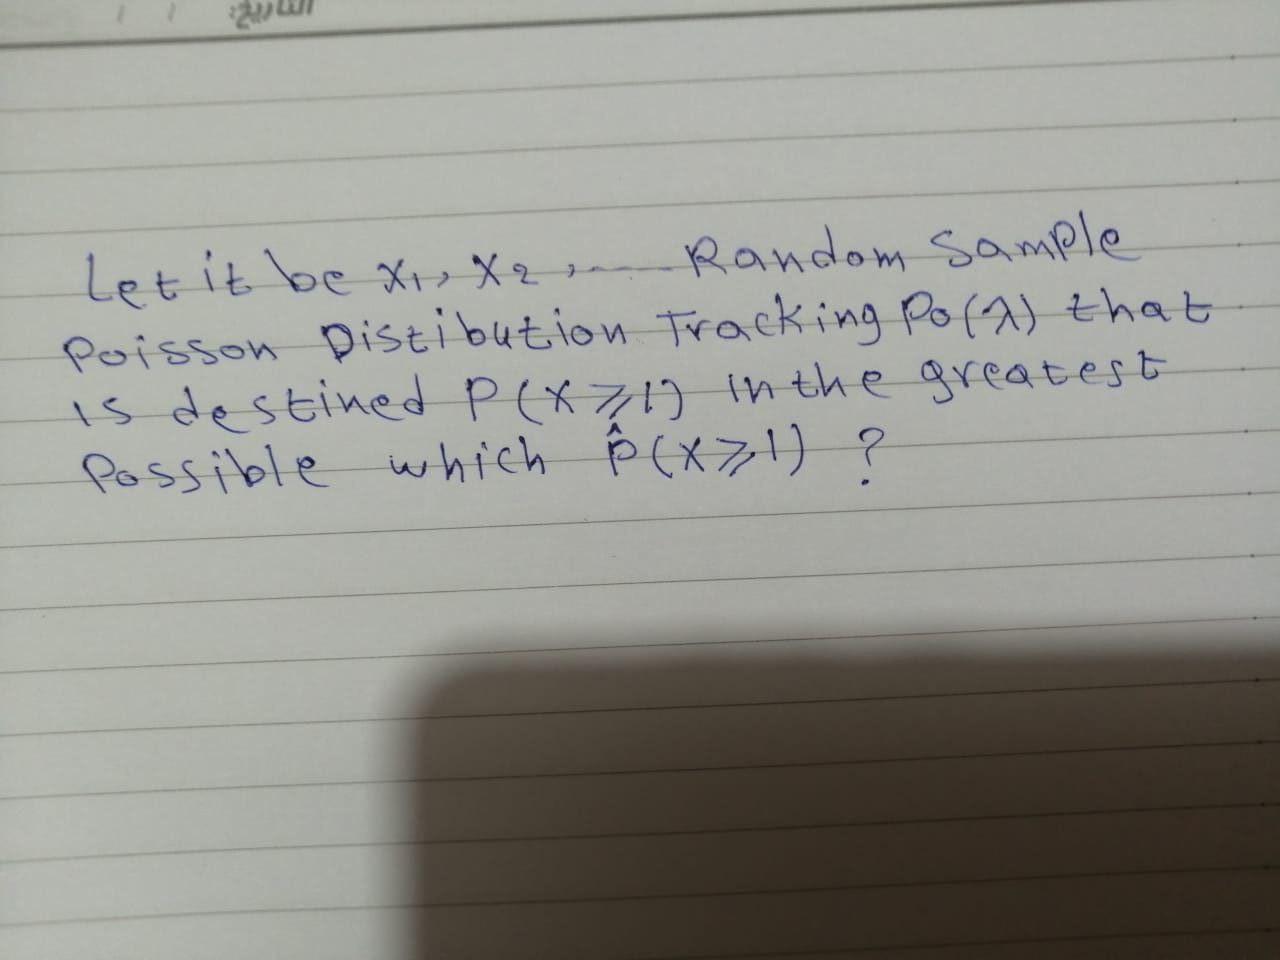 التاريخ: / /
Let it be x₁, x₂, ..... Random Sample
Poisson Distibution Tracking Po(λ) that
is destined P(x ⩾ 1) in the greatest
Possible which P̂(x ⩾ 1) ?